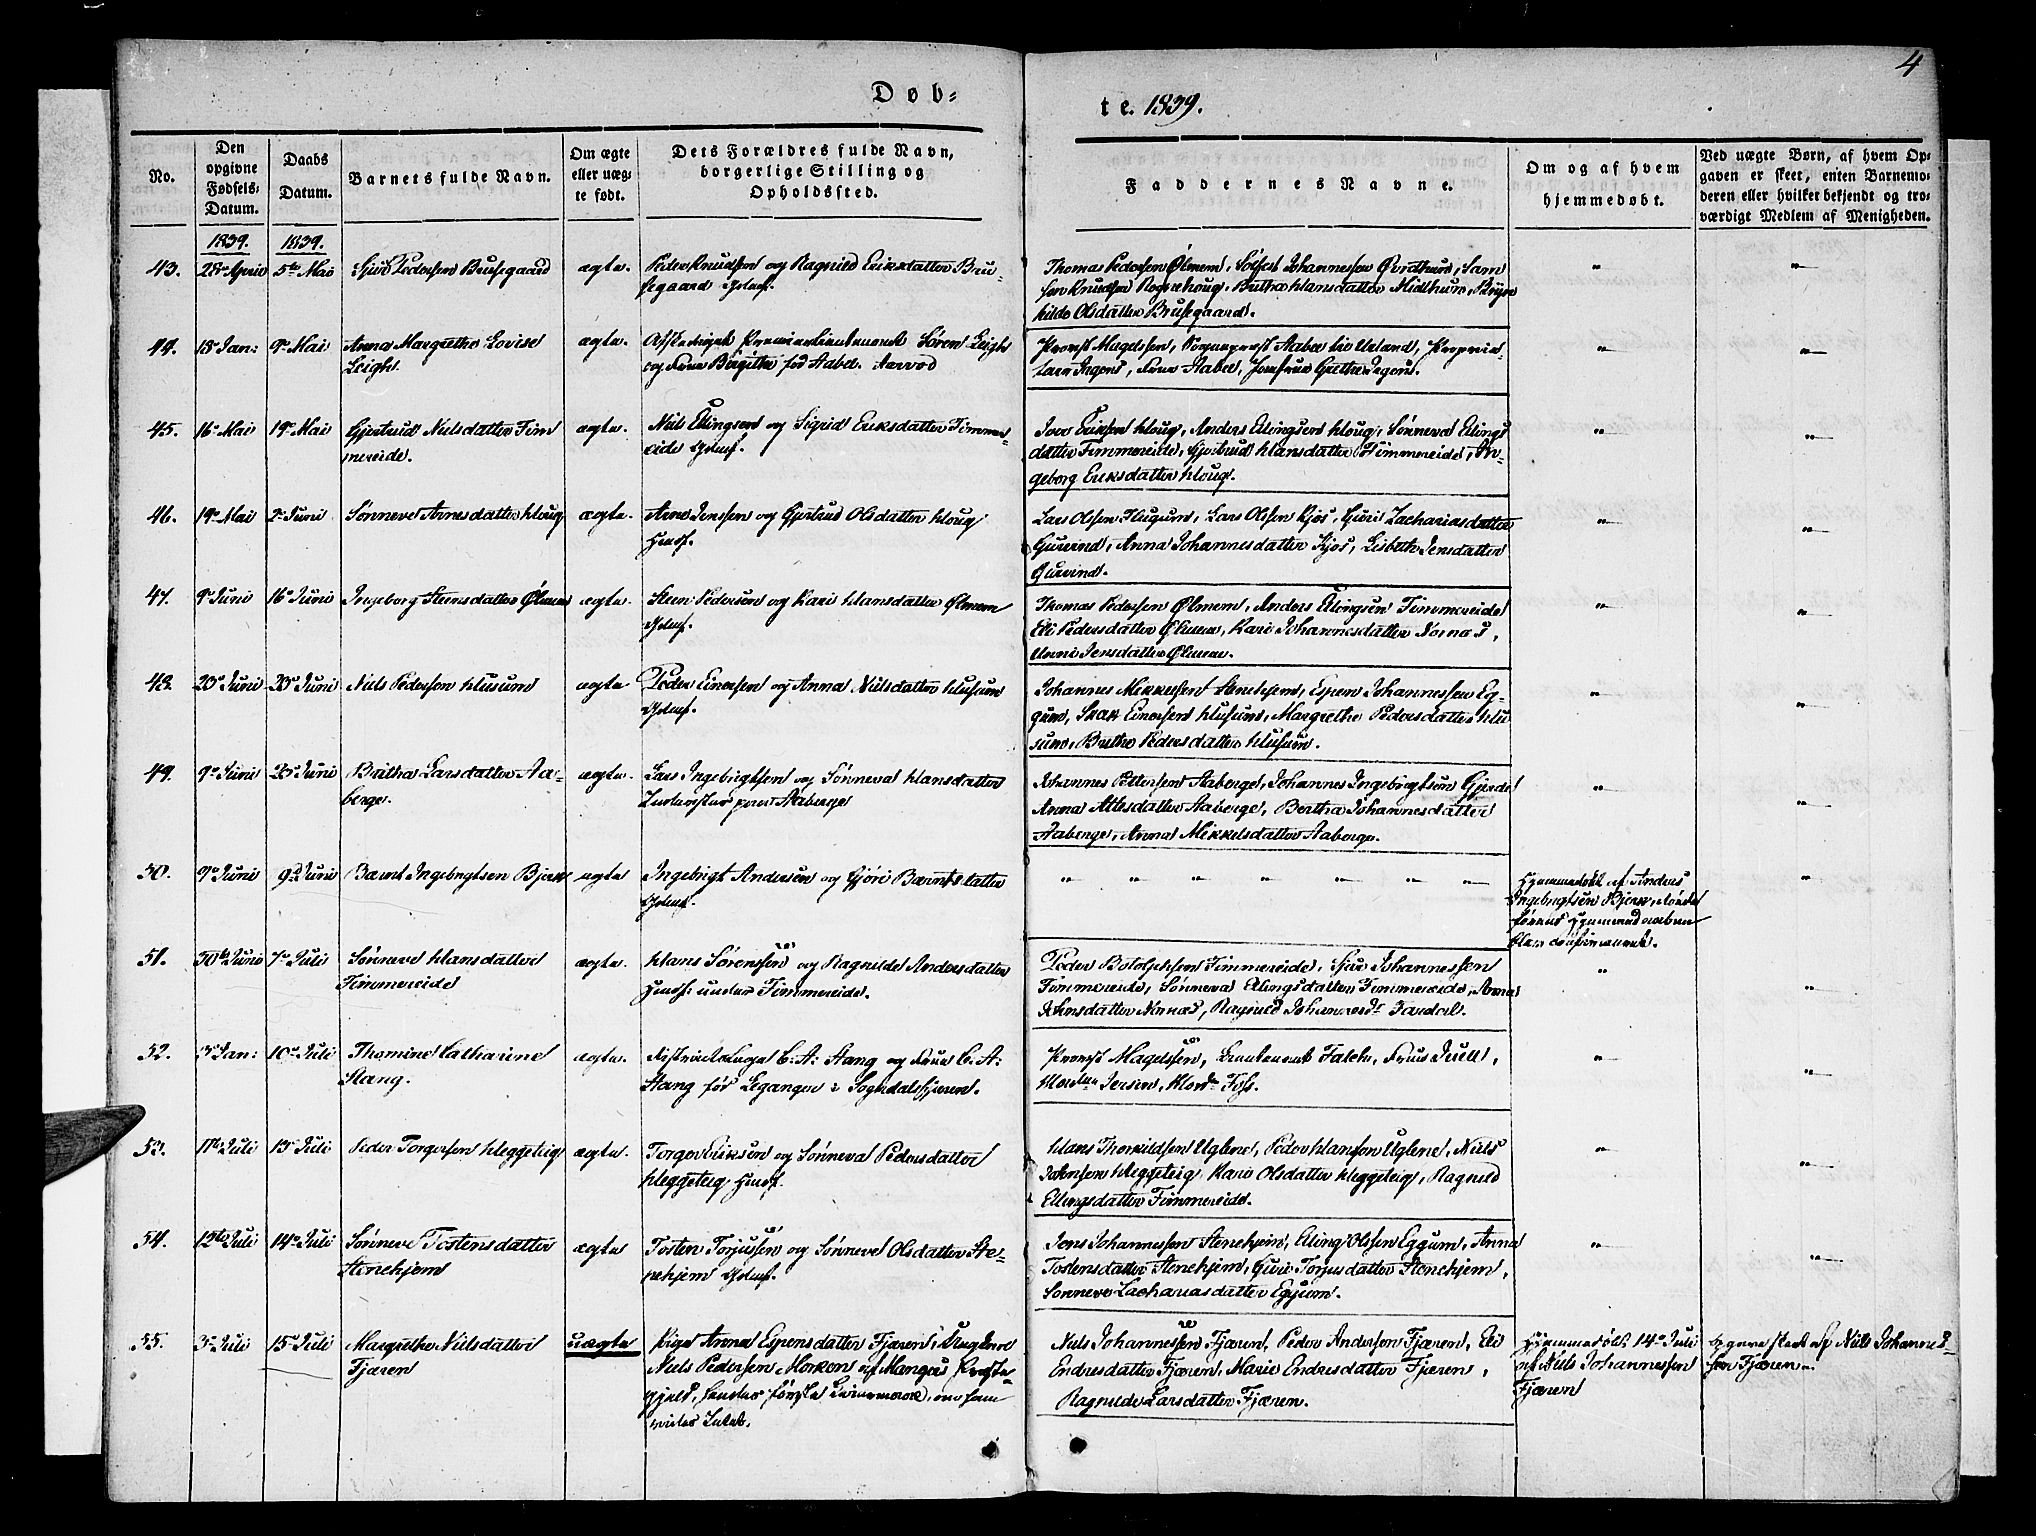 4
Døb-
te. 1839.
No.
Den opgivne Fødsels-Datum.
Daabs Datum.
Barnets fulde Navn.
Om ægte eller uægte født.
Dets Forældres fulde Navn, borgerlige Stilling og Opholdssted.
Faddernes Navne.
Om og af hvem hjemmedøbt.
Ved uægte Børn, af hvem Opgaven er skeet, enten Barnemoderen eller hvilket bekjendt og troværdigt Medlem af Menigheden.
1839. 1839.
43. 28de April 5te Mai Sjur Pedersen Brusegaard ægte. Peder Knudsen og Ragnild Eriksdatter Bru-
segaard
Thomas Pedersen Ølmem, Johannessen
Knudsen Britha Hansdatter
Olsdatter Brusegaard.
44. 18 Jan: 9 Mai Anna Margrethe Lovise
Leigh.
ægte. Afskediget Premierlieutenant Søren Leigh
og Frue Birgitha fød Aabel.
Provst Magelssen, Sognepræst Aabel
Frue Aabel, Jomfrue Grethe
45. 16 Mai 19 Mai Gjertrud Nielsdatter Tim
mereide.
ægte. Niels Ellingsen og Sigrid Eriksdatter Timme-
reide
Eriksen Houg, Anders Ellingsen Houg, Sønneva Ellings
datter Timmereide, Gjertrud Hansdatter Timmereide, In
geborg Eriksdatter Houg.
46. 19 Mai 2 Juni Sønneve Arnesdatter Houg ægte Arne Jenssen og Gjertrud Olsdatter Houg
Huusf.
Lars Olssen Flugum, Lars Olssen Kjos, Guri Zachariasdatter
Anna Johannesdatter Kjos, Lisbeth Jensdatter
47. 9 Juni 16 Juni Ingeborg Steensdatter Ølmem ægte. Steen Pedersen og Kari Hansdatter Ølmem
Thomas Pedersen Ølmem, Anders Ellingsen Timmereide
Eli Pedersdatter Ølmem, Kari Johannesdatter Nornæs,
Jensdatter Ølmem.
48. 20 Juni 23 Juni Niels Pedersen Husum ægte Peder Einersen og Anna Nielsdatter Husum
Johannes Mikkelsen Stenehjem, Espen Johannessen Eg-
gum, Isak Einersen Husum, Margrethe Pedersdatter Hu
sum, Brithe Pedersdatter Husum.
49. 9 Juni 23 Juni Britha Larsdatter Aa-
berge.
ægte. Lars Ingebrigtsen og Sønneva Hansdatter
Inderster paa Aaberge
Johannes Pettersen Aaberge, Johannes Ingebrigtsen Gjerde
Anna Atlesdatter Aaberge, Bertha Johannesdatter
Aaberge, Anna Mikkelsdatter Aaberge.
50. 9 Juni 9 Juni Bernt Ingebrigtsen Bjerk ægte Ingebrigt Andersen og Gjøri Berntsdatter
Hjemmedøbt af Anders
Ingebrigtsen Bjerk, døde
51. 30te Juni 7 Juli Sønneve Hansdatter
Timmereide
ægte. Hans Sørenssen og Ragnilde Andersdatter
Huusf: under Timmereide.
Peder Botolphsen Timmereide, Sjur Johannessen
Timmereide, Sønneva Ellingsdatter Timmereide, Anna
Johnsdatter Nornæs, Ragnild Johannesdr
52. 3 Jan: 10 Juli Thomine Catharine
Stang.
ægte. Districtslæge C: A: Stang og Frue C: A:
Stang før Leganger i Sogndalsfjæren.
Provst Magelssen, Lieutenant Falch, Frue Juell,
Jersin, Foss.
53. 11te Juli 13 Juli Peder Torgersen Heggeteig ægte. Torger Eriksen og Sønneva Pedersdatter
Heggeteig Huusf.
Hans Thorkildsen Uglene, Peder Hansen Uglene, Niels
Johnsen Heggeteig Kari Olsdatter Heggeteig, Ragnild
Ellingsdatter Timmereide.
54. 12te Juli 14 Juli Sønneve Tostensdatter
Stenehjem
ægte Tosten Torjussen og Sønneve Olsdatter Ste-
nehjem
Jens Johannessen Stenehjem, Elling Olssen Eggum, Anna
Tostensdatter Stenehjem, Guri Torjusdatter Stenehjem,
Sønneve Zachariasdatter Eggum.
55. 3 Juli 15 Juli Margrethe Nielsdatter
Fjæren
uægte Pige Anna Espensdatter Fjæren, Ungkarl
Niels Pedersen Morken af Manger Præste-
gjeld,
Niels Johannessen Fjæren, Peder Andersen Fjæren, Eli
Endresdatter Fjæren, Marie Endresdatter Fjæren,
Ragnilde Larsdatter Fjæren.
Hjemmedøbt 14 Juli
af Niels Johannessen
Fjæren
Opgave skeet af Niels Johannes-
sen Fjæren.